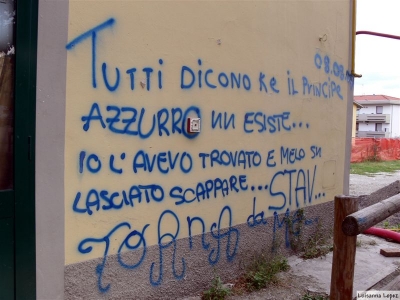 TUTTI DICONO KE IL PRINCIPE
AZZURRO NN ESISTE...
IO L'AVEVO TROVATO E MELO SN
LASCIATO SCAPPARE... STAV...
TORNA da ME
Lilisanna Lopez